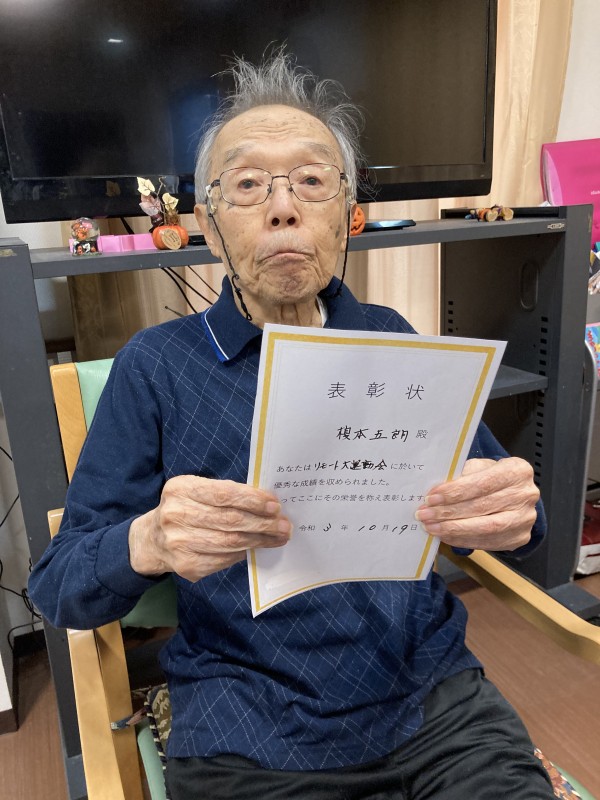 表彰状
榎本五朗 殿
あなたは リモート大運動会 に於いて
優秀な成績を収められました。
ってここにその栄誉を称え表彰します
令和 3 年 10 月 19 日